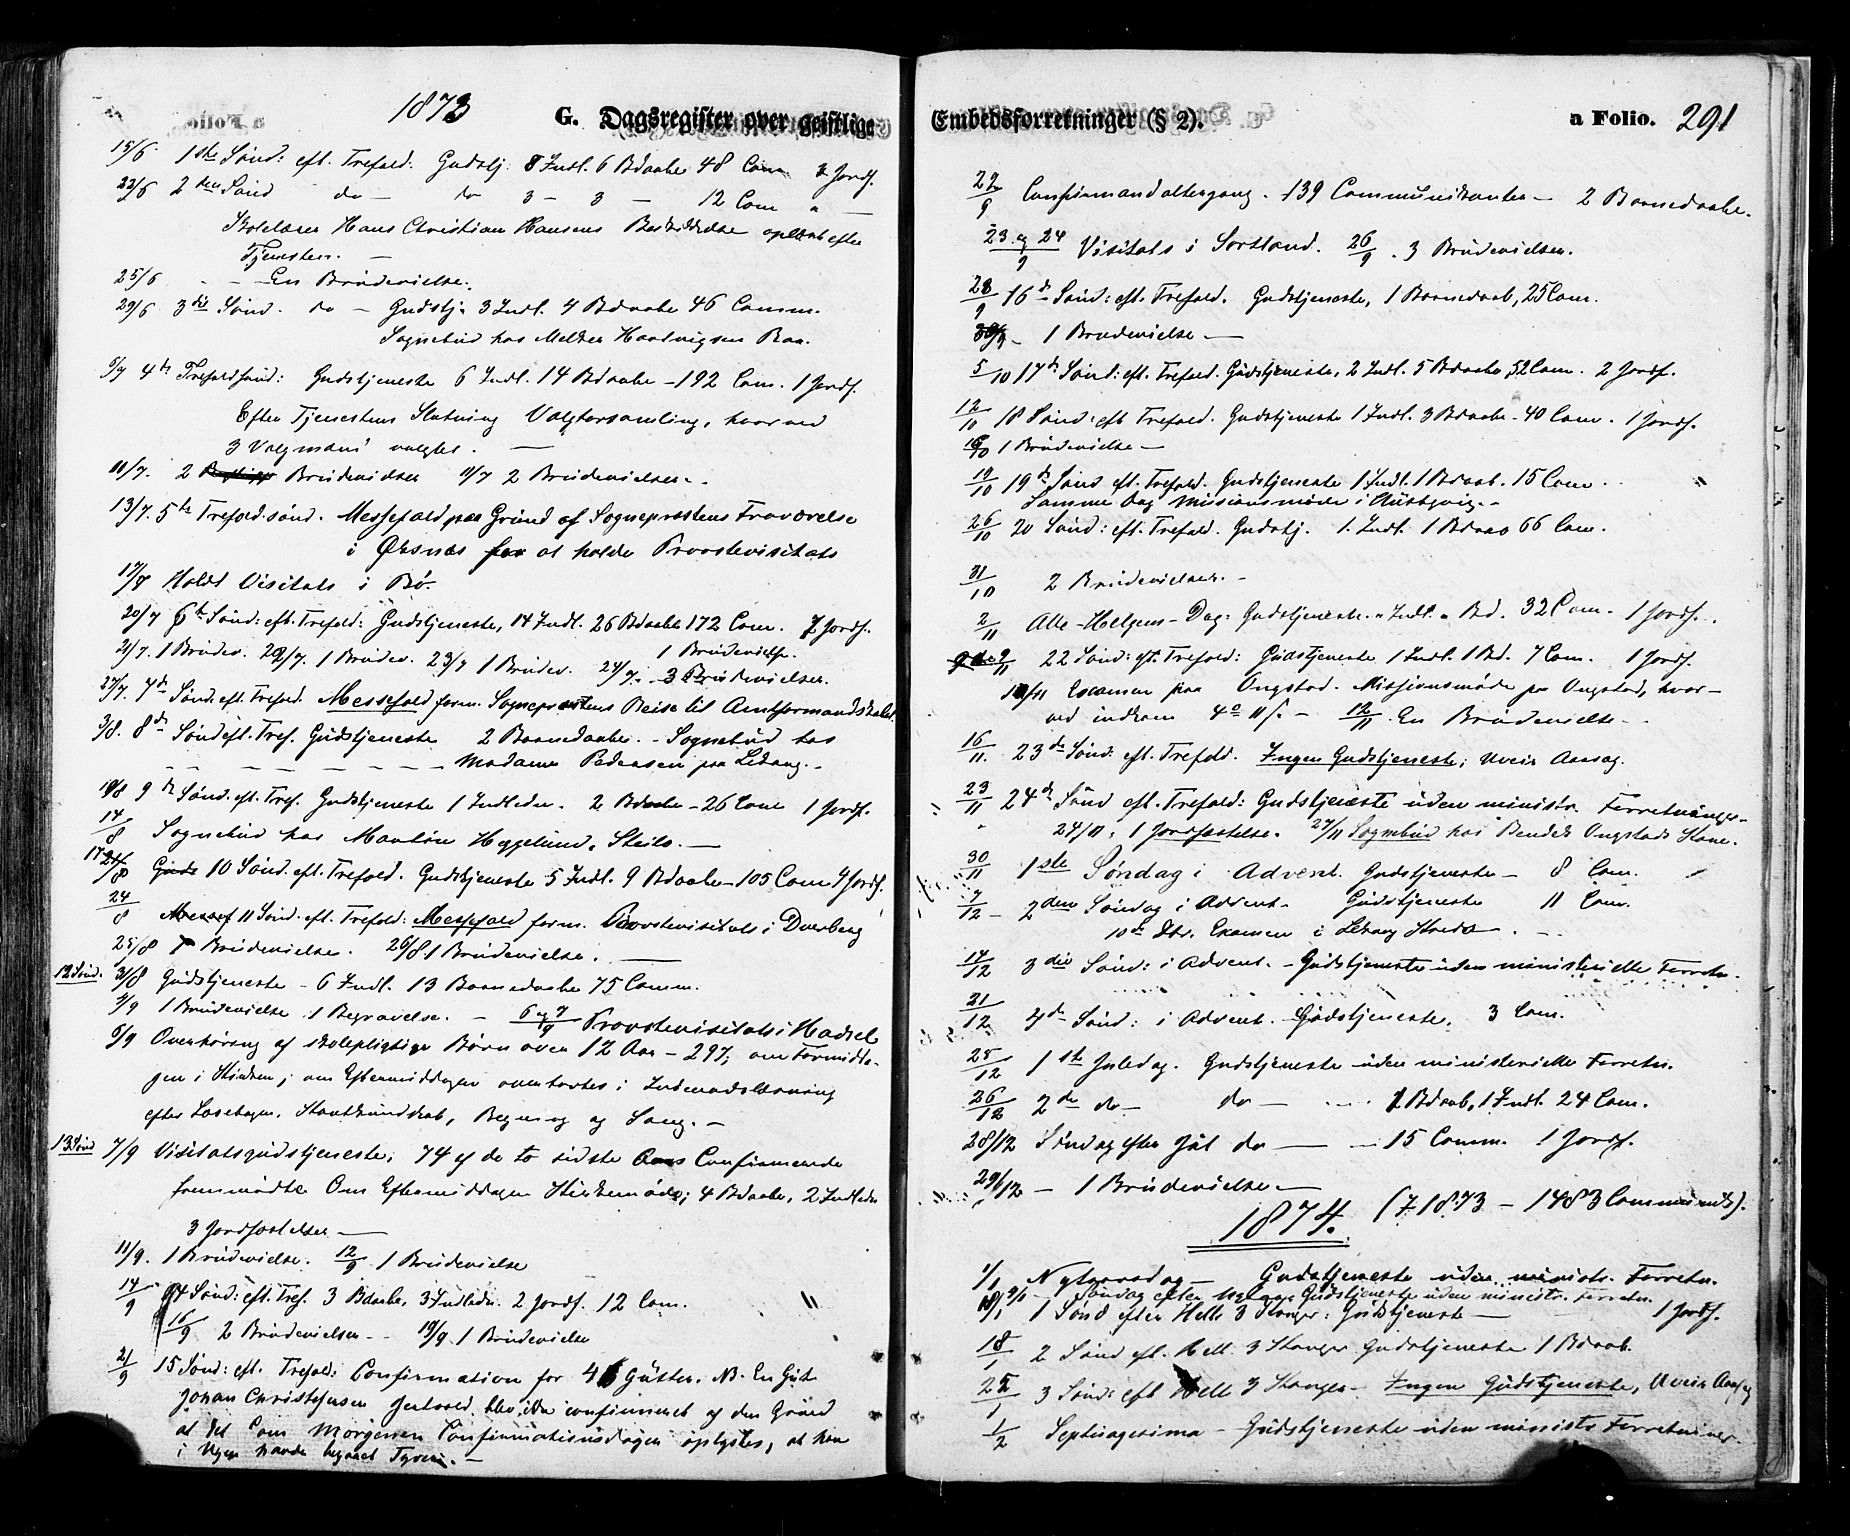 1873 G. Dagsregister over geistlige
15/6 1ste Sønd: eft. Trefold: Gudstj: 8 Indl. 6 Bdaabe 48 Com 3 Jordf.
22/6 2den Sønd do — do 3 — 3 — 12 Com " —
Skolelærer Hans Christian Hansens Beskikkelse oplæst efter
Tjenesten. —
25/6 - - En Brudevielse.
29/6 3die Sønd. do — Gudstj. 3 Indl. 4 Bdaabe 46 Comm.
Sognebud hos Hartvigsen
6/7 4de Trefoldsønd: Gudstjeneste 6 Indl. 14 Bdaabe — 192 Com. 1 Jordf.
Efter Tjenestens Slutning Valgforsamling, hvorved
3 Valgmænd valgtes. —
10/7. 2 Brudevielser 11/7 2 Brudevielser. -
13/7. 5te Trefold. sønd. Messefald paa Grund af Sognepræstens Fraværelse
i Øksnæs for at holde Provstevisitats
17/7 Holdt Visitats i Bø.
20/7 6te Sønd: eft. Trefold: Gudstjeneste, 14 Indl. 26 Bdaabe 172 Com. 7 Jordf.
1 Brudevielse.
21/7. 1 Brudev. 22/7. 1 Brudev. 23/7 1 Brudev. 24/7. 3 Brudevielser.
27/7. 7de Sønd. eft. Trefold. Messefald form. Sognepræstens Reise til Amtsformandskabet
3/8. 8de Sønd eft. Tref. Gudstjeneste 2 Barnedaabe. - Sognebud hos
— — — — — — Madame Pedersen paa Lekang. -
10/8 9de Sønd. eft. Tref. Gudstjeneste 1 Indleder. 2 Bdaabe — 26 Com 1 Jordf.
14/8 Sognebud hos Hyggelund, Steilo. —
17/8 10 Sønd. eft. Trefold. Gudstjeneste 5 Indl. 9 Bdaabe — 105 Com 4 Jordf.
24/8 Messef 11 Sønd. eft. Trefold: Messefald form. Provstevisitats i Dverberg
25/8 Brudevielse. 26/8 1 Brudevielse. —
12 Sønd. 31/8 Gudstjeneste — 6 Indl. 13 Barnedaabe 75 Comm.
4/9 1 Brudevielse 1 Begravelse. — 6 og 7/9 Provstevisitats i Hadsel
6/9 Overhøring af skolepligtige Børn over 12 Aar — 297; om Formidda-
gen i Kirken; om Eftermiddagen overhørtes i Indenadslæsning
efter Læsebogen, Skriftkundskab, Regning og Sang. —
13 Sønd 7/9 Visitatsgudstjeneste; 74 af de to sidste Aars Confirmerede
fremmødte Om Eftermiddagen Kirkemøde; 4 Bdaabe, 2 Indleder
3 Jordfæstelser —
11/9. 1 Brudevielse. 12/9 1 Brudevielse
14/9 14 Sønd: eft. Tref. 3 Bdaabe, 3 Indleder. 2 Jordf. 12 Com. "
16/9 2 Brudevielser — 19/9. 1 Brudevielse
21/9 15 Sønd: eft. Trefold: Confirmation for 46 Gutter. NB. En Gut
Johan Christensen blev ikke confirmeret af den Grund
at det om Morgenen Confirmationsdagen oplystes, at han
i Ugen havde begaaet Tyveri. —
Embedsforretninger (§ 2). a Folio. 291
22/9 Confirmandaltergang. 139 Communikanter — 2 Barnedaabe.
23 og 24/9 Visitats i Sortland. 26/9. 3 Brudevielser.
28/9 16de Sønd: eft. Trefold. Gudstjeneste, 1 Barnedaab, 25 Com.
30/9 - 1 Brudevielse —
5/10 17de Sønd: eft. Trefold. Gudstjeneste, 2 Indl. 5 Bdaabe, 52 Com. 2 Jordf.
12/10 18 Sønd: eft Trefold. Gudstjeneste 1 Indl. 3 Bdaabe — 40 Com. 1 Jordf.
1 Brudevielse —
19/10 19de Sønd eft. Trefold. Gudstjeneste 1 Indl. 1 Bdaab. 15 Com. "
Samme Dag Missionsmøde i
26/10 20 Sønd: eft. Trefold. Gudstj. 1. Indl. 1 Bdaab 66 Com.
31/10 2 Brudevielser. -
2/11 Alle-Helgens-Dag: Gudstjeneste. " Indl. " Bd. 32 Com. 1 Jordf.
9/11 22 Sønd: eft. Trefold: Gudstjeneste 1 Indl. 1 Bd. 7 Com. 1 Jordf.
10/11 Examen paa Ongstad. Missionsmøde paa Ongstad, hvor-
ved indkom 4 11 s. — 12/11. En Brudevielse -
16/11. 23de Sønd: eft. Trefold. Ingen Gudstjeneste; Uveir Aarsag.
23/11 24de Sønd eft. Trefold: Gudstjeneste uden ministr. Forretninger.
24/11. 1 Jordfæstelse. 27/11 Sognebud hos Bendik Ongstads Kone.
30/11 1ste Søndag i Advent. Gudstjeneste — 8 Com.
7/12 - 2den Søndag i Advent - Gudstjeneste 11 Com.
10de Dbr. Examen i Lekang Kreds — . -
14/12 3die Sønd: i Advent. — Gudstjeneste uden ministerielle Forretn.
21/12 4de Sønd: i Advent. Gudstjeneste. 3 Com.
25/12 1ste Juledag. Gudstjeneste uden ministerielle Forretn.
26/12 2de do — do — 1 Bdaab, 1 Indl. 24 Com.
28/12 Søndag efter Jul do — 15 Comm. 1 Jordf.
29/12 — 1 Brudevielse —
1874. (I 1873 — 1483 Communik).
1/1 Nytaarsdag — Gudstjeneste uden ministr. Forretn.
4/1 - Søndag efter Nytaar Gudstjeneste uden ministr. Forretn.
11/1 1 Sønd efter Hell. 3 Konger: Gudstjeneste — 1 Jordf.
18/1 2 Sønd eft. Hell. 3 Konger Gudstjeneste 1 Bdaab.
25/1 3 Sønd: eft Hell 3 Konger — Ingen Gudstjeneste, Uveir Aarsag
1/2 Septuagesima — Gudstjeneste uden ministr Forretninger.